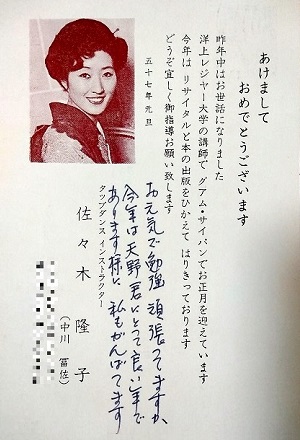 あけまして
おめでとうございます
昨年中はお世話になりました
洋上レジャー大学の講師で グアム・サイパンでお正月を迎えています
今年は リサイタルと本の出版をひかえて はりきっております
どうぞ宜しく御指導お願い致します
五十七年 元旦
お元気で勉強頑張ってますか、
今年は天野君にとって良い年で
あります様に 私もがんばってます
タップダンス インストラクター
佐々木 隆子
(中川 冨佐)